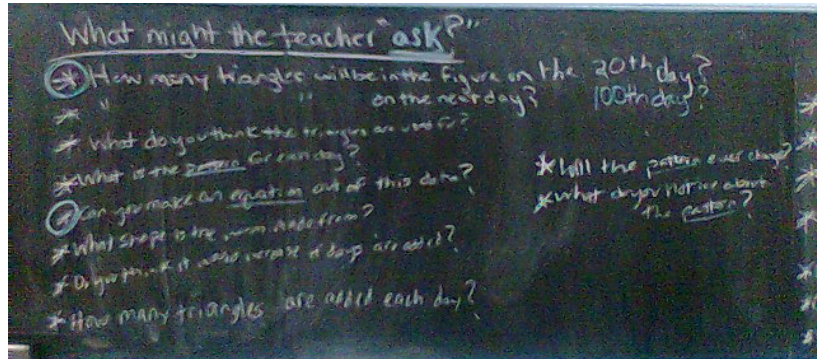 What might the teacher "ask?"
* How many triangles will be in the figure on the 20th day?
* " " on the next day? 100th day?
* What do you think the triangles are used for?
* What is the pattern for each day?
* Can you make an equation out of this data?
* What shape is the worm made from?
* Do you think it would increase if days are added?
* How many triangles are added each day?
* Will the pattern ever change?
* What do you notice about
the pattern?